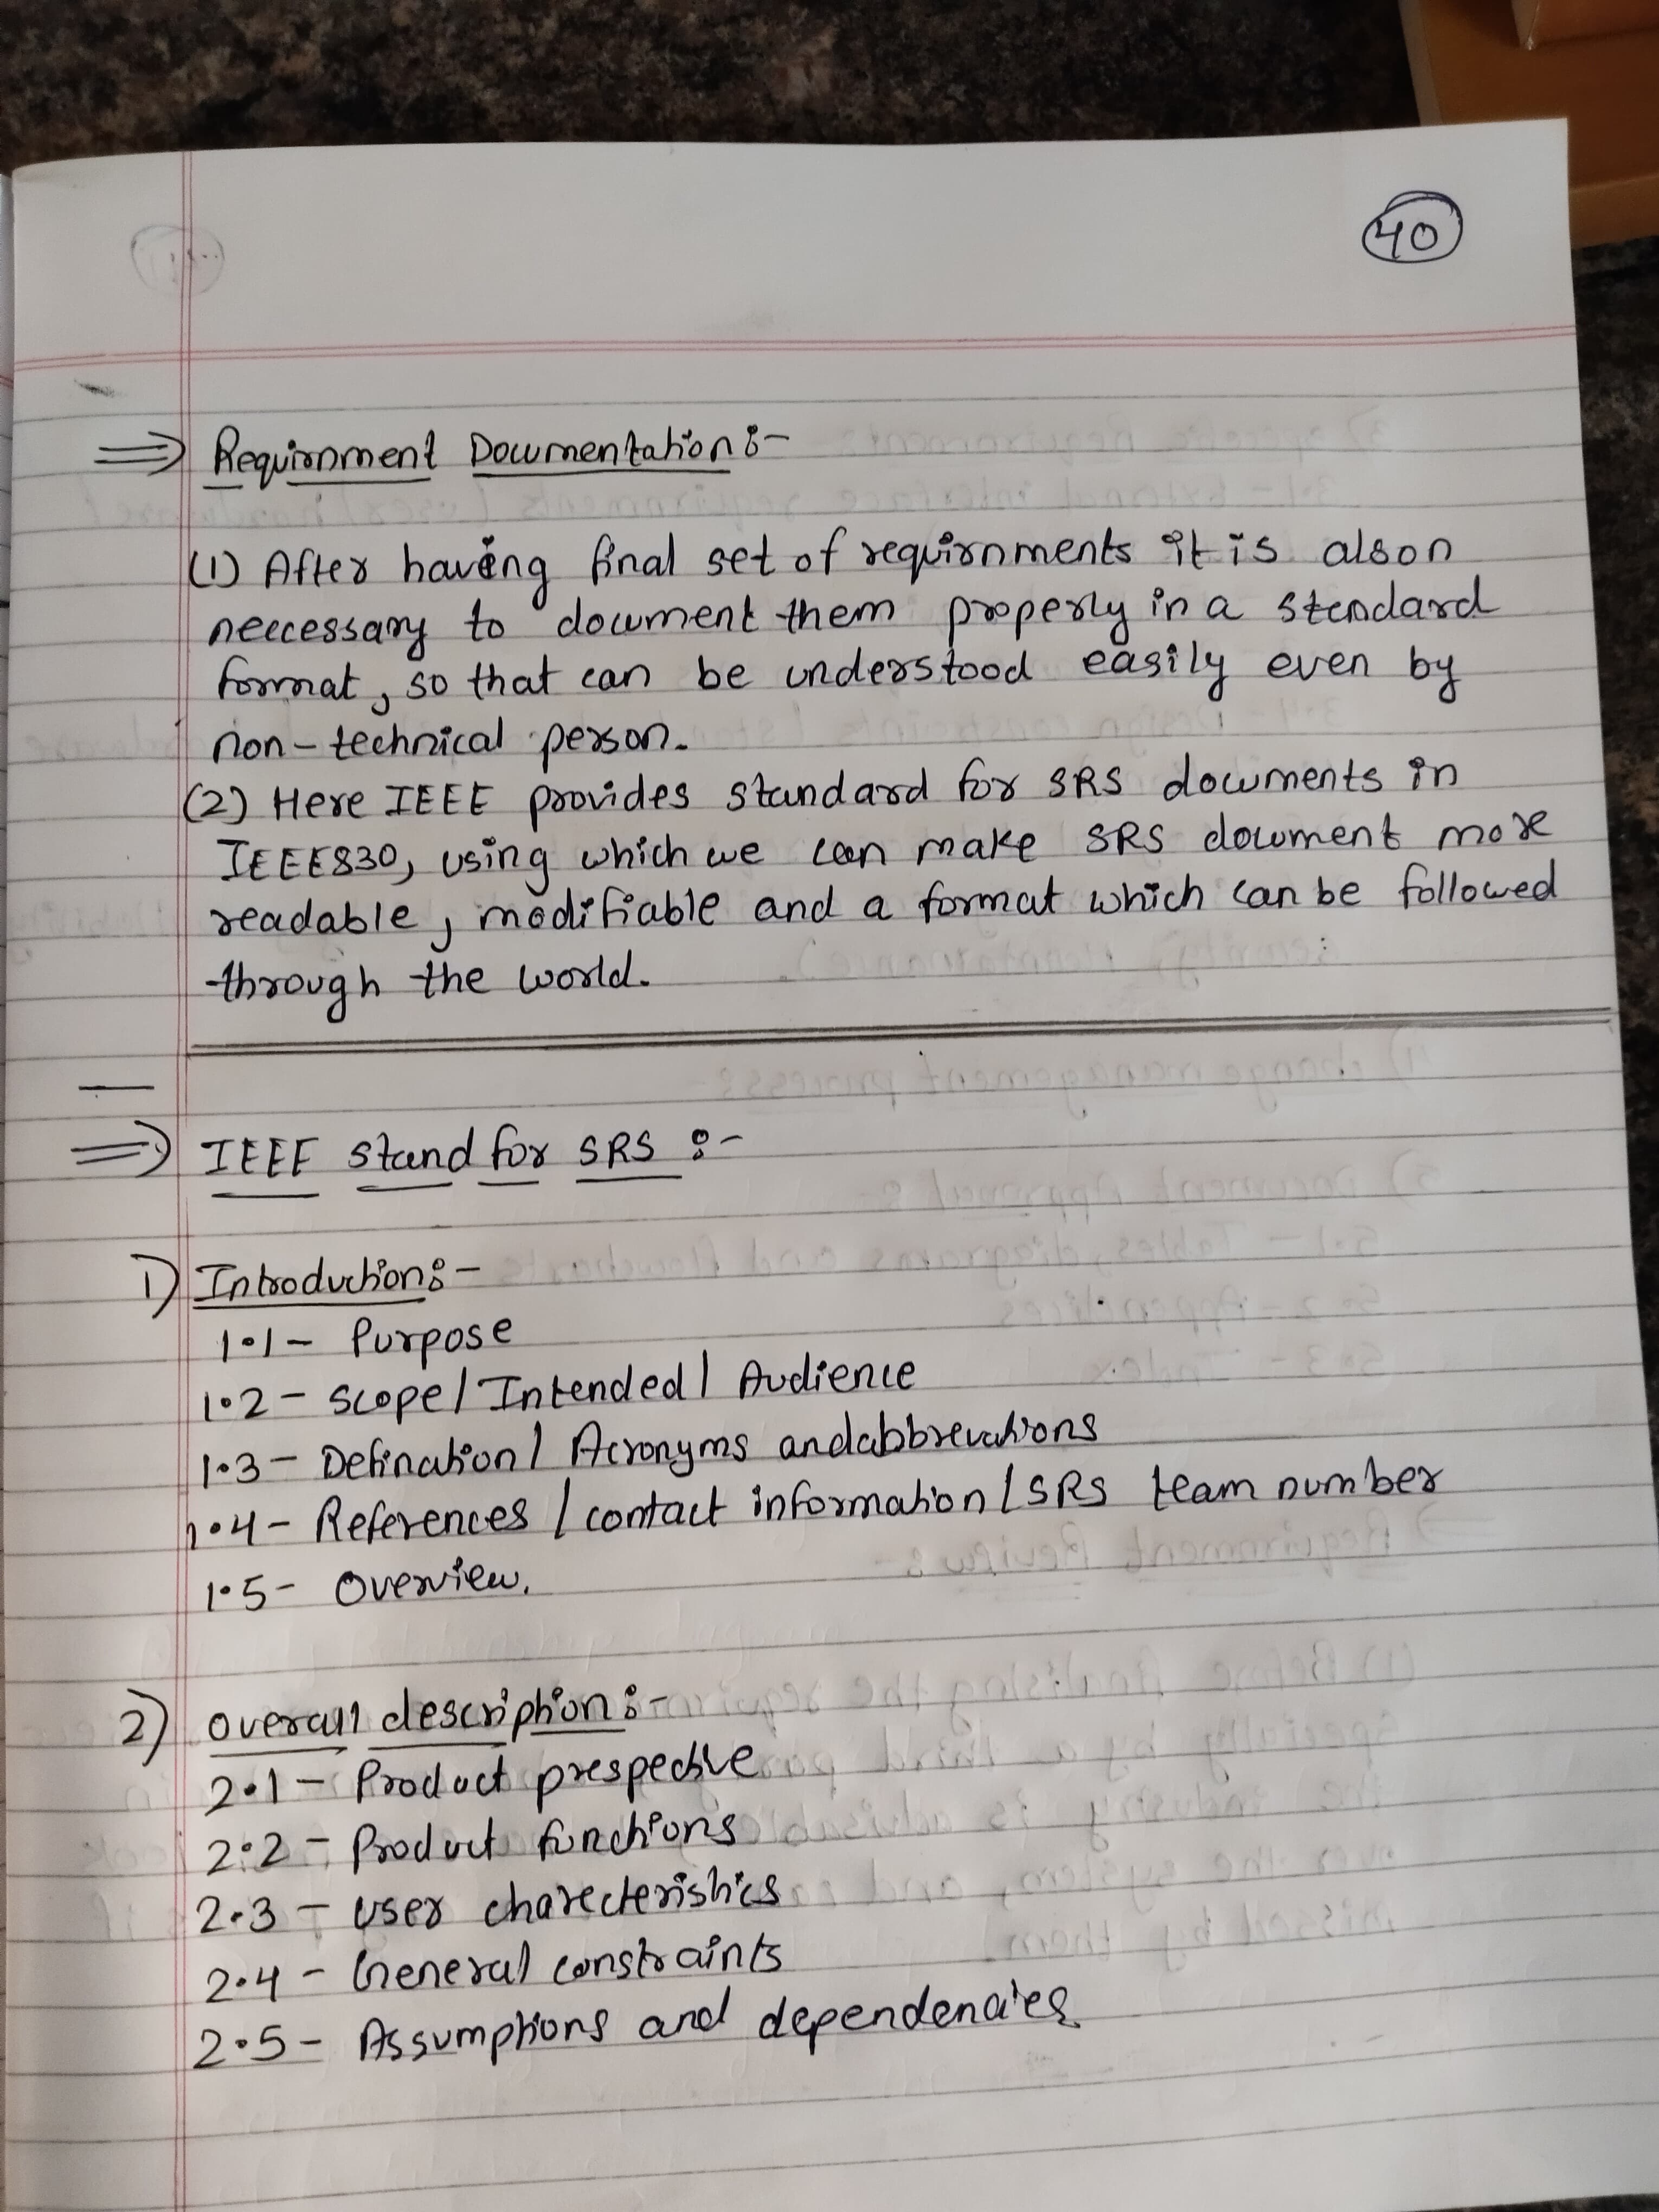 40
⇒ Requirnment Documentation:-
(1) After having final set of requirnments it is alson
neccessary to document them properly in a standard
format, so that can be understood easily even by
non-technical person.
(2) Here IEEE provides standard for SRS documents in
IEEE830, using which we can make SRS document more
readable, modifiable and a format which can be followed
through the world.
⇒ IEEE stand for SRS :-
1) Introduction:-
1.1- Purpose
1.2- scope/Intended/ Audience
1.3- Defination/ Acronyms andabbrevations
1.4- References / contact information/SRS team number
1.5- Overview.
2) overall description:-
2.1- Product prespective
2.2- Product functions
2.3- user charecteristics
2.4- General constraints
2.5- Assumptions and dependencies